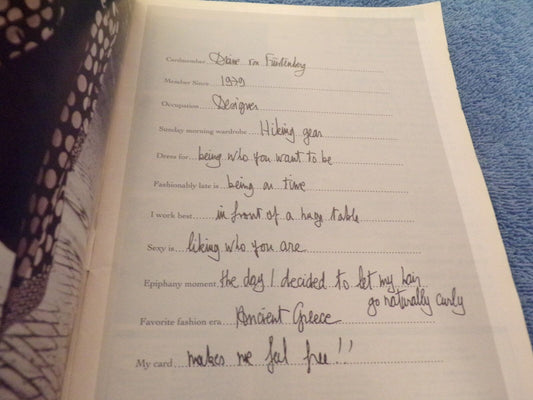 Cardmember Diane von Fürstenberg
Member Since 1979
Occupation Designer
Sunday morning wardrobe Hiking gear
Dress for being who you want to be
Fashionably late is being on time
I work best in front of a huge table
Sexy is liking who you are
Epiphany moment the day I decided to let my hair
go naturally curly
Favorite fashion era Ancient Greece
My card makes me feel free!!